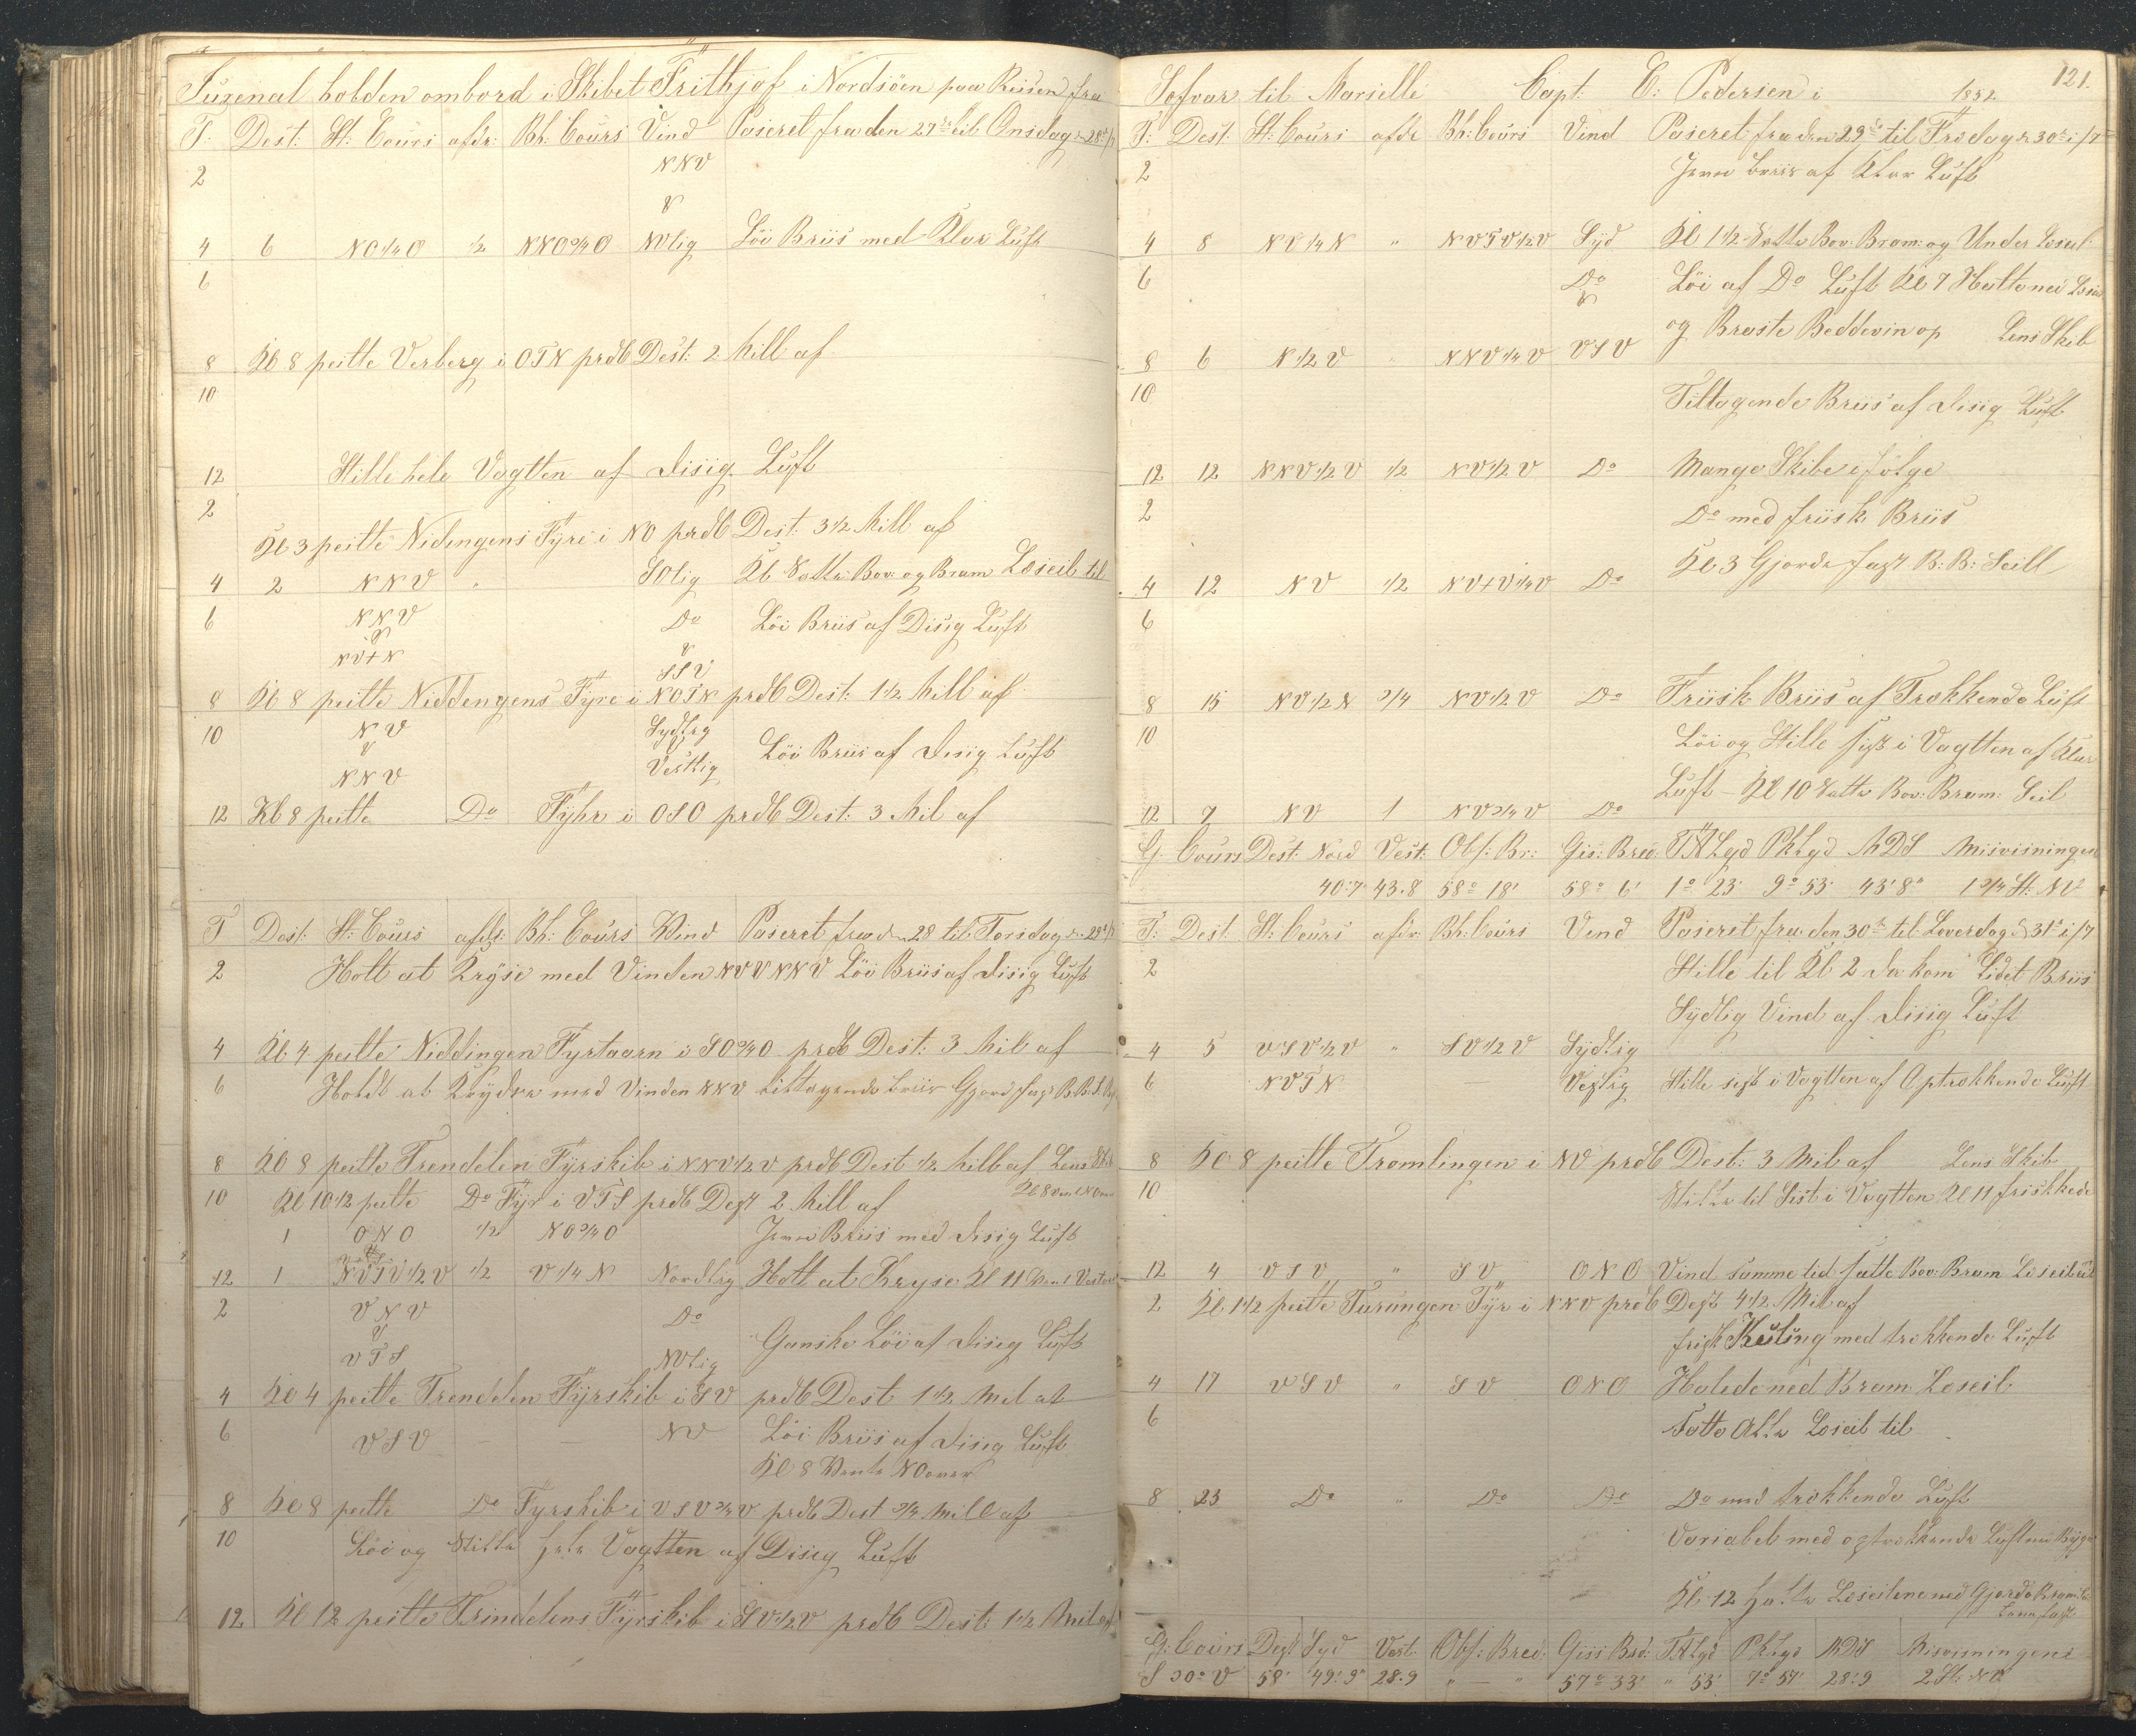 Jurenal holden ombord i Skibet Frithjof i Nordsöen paa Reisen fra
T: Dest: St: Cours afdr: Bh: Cours Vind Paseret fra den 27de til Onsdag d 28de
2 NNV
4 6 NO1/4O 1/2 NNO3/4O NVlig Löi Briis med Klar Luft
6
8 Kl 8 peilte Verberg i OTN prdk Dest: 2 Mill af
10
12 Stille hele Vagtten af disig Luft
2
Kl 3 peilte Nidingens Fyre i NO prdk Dest: 3 1/2 Mill af
4 2 NNV " SOlig Kl Satte Bov: og Bram Læseil til
6 NNV Do Löi Briis af Disig Luft
NVtN SSV
8 Kl 8 peilte Niddengens Fyre i NOTN prdk Dest: 1 1/2 Mill af
10 NV Sydlig
Löi Briis af Disig Luft
NNV Vestlig
12 Kl 8 peilte Do Fyhr i OSO prdk Dest: 3 Mil af
T Dest: St: Cours afdr: Bh: Cours Vind Paseret fra d 28 til Torsdag d 29de
2 Holt at Kryse med Vinden NVVNNV Löi Briis af disig Luft
4 Kl 4 peilte Niddingen Fyrtaarn i SO3/4O prdk Dest: 3 Mil af
6 Holdt at Krydse med Vinden NNV tiltagende briis Gjord fast B.B.S.
8 Kl 8 peilte Trendelen Fyrskib i NNV1/2V prdk Dest 1/2 Mill af Lens Skib
10 Kl 10 1/2 peilte Do Fyr i VTS prdk Dest 2 Mill af
1 ONO 1/2 NO3/4O Jevn Briis med disig Luft
12 1 NVTV1/2V 1/2 V1/4N Nordlig Holt at Kryse Kl 11
2 VNV Do
Ganske Löi af disig Luft
VTS NVlig
4 Kl 4 peilte Trendelen Fyrskib i SV prdk Dest 1 1/2 Mil af
6 VSV NV Löi Briis af disig Luft
Kl 8 Vente NOover
8 Kl 8 peilte Do Fyrskib i VSV3/4V prdk Dest 3/4 Mill af
10 Löi og Stille hele Vagtten af Disig Luft
12 Kl 12 peilte Trindelens Fyrskib i SV1/2V prdk Dest: 1 1/2 Mil af
121.
til Marselle Capt: C: Pedersen i 1882
T: Dest: St: Cours afdr Bh: Cours Vind Paseret fra den 29de til Fredag d 30te i/7
2 Jevn briis af Klar Luft
4 8 NV1/4N " NVTV1/2V Syd Kl 1 1/2 Satte Bov: Bram: og Under Læseil
6 Do Löi af Do Luft Kl 7 Halte ned
og Braste Beddevin op Lens Skib
8 6 N1/2V " NNV1/4V VSV
10 Tiltagende Briis af disig Luft
12 12 NNV1/2V 1/2 NV1/2V Do Mange Skibe i fölge
2 Do med friisk Briis
Kl 3 Gjorde fast B: B: Seill
4 12 NV 1/2 NVtV1/4V Do
6
8 15 NV1/2N 3/4 NV1/2V Do Friisk Briis af Trækkende Luft
10 Löi og Stille sist i Vagtten af Klar
Luft - Kl 10 Satte Bov: Bram: Seil
12 7 NV 1 NV3/4V Do
G: Cours Dest: Nord Vest: Obs: Br: Gis: Bred: TALgd PkLgd MDS Misvisningen
40:7 43.8 58° 18' 58° 6' 1° 23' 9° 53' 43'8" 1 3/4 St: NV
T: Dest: St: Cours afdr: Bh: Cours Vind Paseret fra den 30te til Loverdag d 31te i/7
2 Stille til Kl 2 da kom Lidet Briis
Sydlig Vind af disig Luft
4 5 VSV1/2V " SV1/2V Sydlig
6 NVTN Vestlig Stille sist i Vagtten af Optrækkende Luft
8 Kl 8 peilte Tromlingen i NV prdk Dest: 3 Mil af Lens Skib
10 Stille til Sist i Vagtten Kl 11 friskkede
12 4 VSV " SV ONO Vind samme tid satte Bov: Bram Læseil til
2 Kl 1 1/2 peilte Turungen Fyr i NNV prdk Dest 4 1/2 Mil af
frisk Kuling med trækkende Luft
4 17 VSV " SV ONO Halede ned Bram Læseil
6 Satte Alle Læseil til
8 23 Do " Do Do Do med trækkende Luft
Variabel med optrækkende Luft med Byge
Kl 12 halte Læseilene ned Gjorde Bram:
fast
G: Cours Dest Syd Vest: Obs: Bred: Giss Bred: TALgd PkLgd MDS Misvisningens
S 30° V 58' 49'.9" 28.9 " — " 57° 33' " 53' 7° 57' 28'.9 2 St: NV